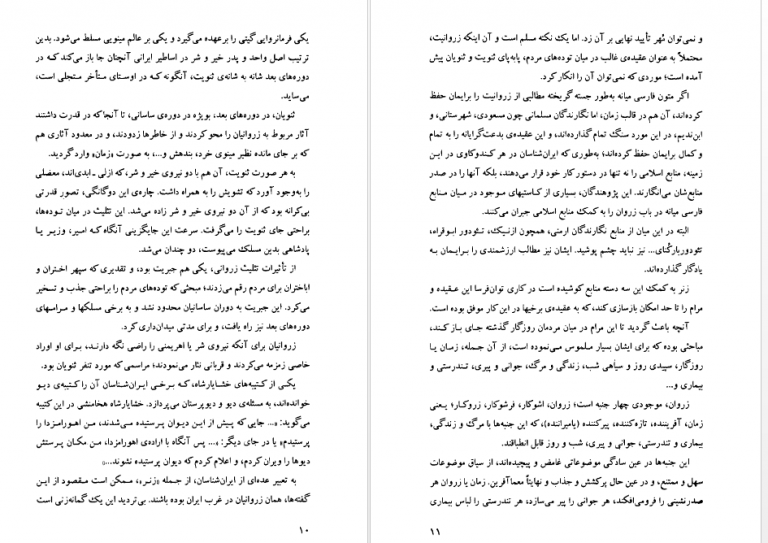 یکی فرمانروایی گیتی را برعهده می‌گیرد و یکی بر عالم مینویی مسلط می‌شود. بدین
ترتیب اصل واحد و پدر خیر و شر در اساطیر ایرانی آنچنان جا باز می‌کند که در
دوره‌های بعد شانه به شانه‌ی ثنویت، آنگونه که در اوستای متأخر متجلی است،
می‌ساید.
ثنویان، در دوره‌های بعد، بویژه در دوره‌ی ساسانی، تا آنجا که در قدرت داشتند
آثار مربوط به زروانیان را محو کردند و از خاطرها زدودند، و در معدود آثاری هم
که بر جای مانده نظیر مینوی خرد، بندهش و...، به صورت «زمان» وارد گردید.
به هر صورت ثنویت، آن هم با دو نیروی خیر و شر، که ازلی ـ ابدی‌اند، معضلی
را به‌وجود آورد که تشویش را به همراه داشت. چاره‌ی این دوگانگی، تصور قدرتی
بی‌کرانه بود که از آن دو نیروی خیر و شر زاده می‌شد. این تثلیث در میان توده‌ها،
براحتی جای ثنویت را می‌گرفت. سرعت این جایگزینی آنگاه که امیر، وزیر یا
پادشاهی بدین مسلک می‌پیوست، دو چندان می‌شد.
از تأثیرات تثلیث زروانی، یکی هم جبریت بود، و تقدیری که سپهر اختران و
اباختران برای مردم رقم می‌زدند؛ مبحثی که توده‌های مردم را براحتی جذب و تسخیر
می‌کرد. این جبریت به دوران ساسانیان محدود نشد و به برخی مسلکها و مرامهای
دوره‌های بعد نیز راه یافت، و برای مدتی میدان‌داری کرد.
زروانیان برای آنکه نیروی شر یا اهریمنی را راضی نگه دارند، برای او اوراد
خاصی زمزمه می‌کردند و قربانی نثار می‌نمودند؛ مراسمی که مورد تنفر ثنویان بود.
یکی از کتیبه‌های خشایارشاه، که برخی ایران‌شناسان آن را کتیبه‌ی دیو
خوانده‌اند، به مسئله‌ی دیو و دیوپرستان می‌پردازد. خشایارشاه هخامنشی در این کتیبه
می‌گوید: «... جایی که پیش از این دیوان پرستیده می‌شدند، من اهورامزدا را
پرستیدم» یا در جای دیگر: «... پس آنگاه با اراده‌ی اهورامزدا، من مکان پرستش
دیوها را ویران کردم، و اعلام کردم که دیوان پرستیده نشوند...»
به تعبیر عده‌ای از ایران‌شناسان، از جمله «زنر»، ممکن است مقصود از این
گفته‌ها، همان زروانیان در غرب ایران بوده باشند. بی‌تردید این یک گمانه‌زنی است
۱۰
و نمی‌توان مُهر تأیید نهایی بر آن زد. اما یک نکته مسلم است و آن اینکه زروانیت،
محتملاً به عنوان عقیده‌ی غالب در میان توده‌های مردم، پابه‌پای ثنویت و ثنویان پیش
آمده است؛ موردی که نمی‌توان آن را انکار کرد.
اگر متون فارسی میانه به‌طور جسته گریخته مطالبی از زروانیت را برایمان حفظ
کرده‌اند، آن هم در قالب زمان، اما نگارندگان مسلمانی چون مسعودی، شهرستانی، و
ابن‌ندیم، در این مورد سنگ تمام گذارده‌اند، و این عقیده‌ی بدعت‌گرایانه را به تمام
و کمال برایمان حفظ کرده‌اند؛ به‌طوری که ایران‌شناسان در هر کندوکاوی در این
زمینه، منابع اسلامی را نه تنها در دستور کار خود قرار می‌دهند، بلکه آنها را در صدر
منابع‌شان می‌انگارند. این پژوهندگان، بسیاری از کاستیهای موجود در میان منابع
فارسی میانه در باب زروان را به کمک منابع اسلامی جبران می‌کنند.
البته در این میان از منابع نگارندگان ارمنی، همچون ازنیک، تئودور ابوقراه،
تئودوربارکُنای... نیز نباید چشم پوشید. ایشان نیز مطالب ارزشمندی را برایمان به
یادگار گذارده‌اند.
زنر به کمک این سه دسته منابع کوشیده است در کاری توان‌فرسا این عقیده و
مرام را تا حد امکان بازسازی کند، که به عقیده‌ی برخیها در این کار موفق بوده است.
آنچه باعث گردید تا این مرام در میان مردمان روزگار گذشته جای باز کند،
مباحثی بوده که برای ایشان بسیار ملموس می‌نموده است، از آن جمله، زمان یا
روزگار، سپیدی روز و سیاهی شب، زندگی و مرگ، جوانی و پیری، تندرستی و
بیماری و...
زروان، موجودی چهار جنبه است؛ زروان، اشوکار، فرشوکار، زروکار؛ یعنی
زمان، آفریننده، تازه‌کننده، پیرکننده (یامیراننده)، که این جنبه‌ها با مرگ و زندگی،
بیماری و تندرستی، جوانی و پیری، شب و روز قابل انطباقند.
این جنبه‌ها در عین سادگی موضوعاتی غامض و پیچیده‌اند، از سیاق موضوعات
سهل و ممتنع، و در عین حال پرکشش و جذاب و نهایتاً معماآفرین. زمان یا زروان هر
صدرنشینی را فرومی‌افکند، هر جوانی را پیر می‌سازد، هر تندرستی را لباس بیماری
۱۱